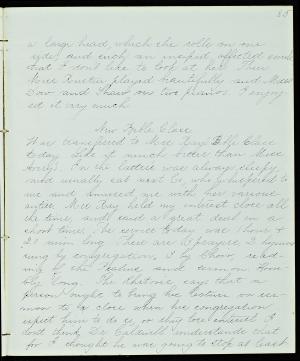 85
a large head, which she rolls on one
side, and such an insipid, affected smile
that I don't like to look at her. Then
Miss played beautifully and Miss
Dow and Shaw on two pianos. I enjoy-
ed it very much.
New Bible Class
Was transferred to Miss Ray's Bible Class
today. Like it much better than Miss
Avery's. For the latter was always sleepy
and usually sat next to, who whispered to
me and amused me with her various
antics. Miss Ray held my interest close all
the time, and said a great deal in a
short time. The service today was 1 hour &
21 min. long. There are 2 prayers, 2 hymns
sung by congregation, 1 by Choir, read-
ing of the Psalms and sermon. Horri-
bly long. The rhetoric says that a
person ought to bring his lecture or ser-
mon to a close when his congregation
expect him to do so, or they lose interest. I
don't think Dr. understands that
for I thought he was going to stop at least